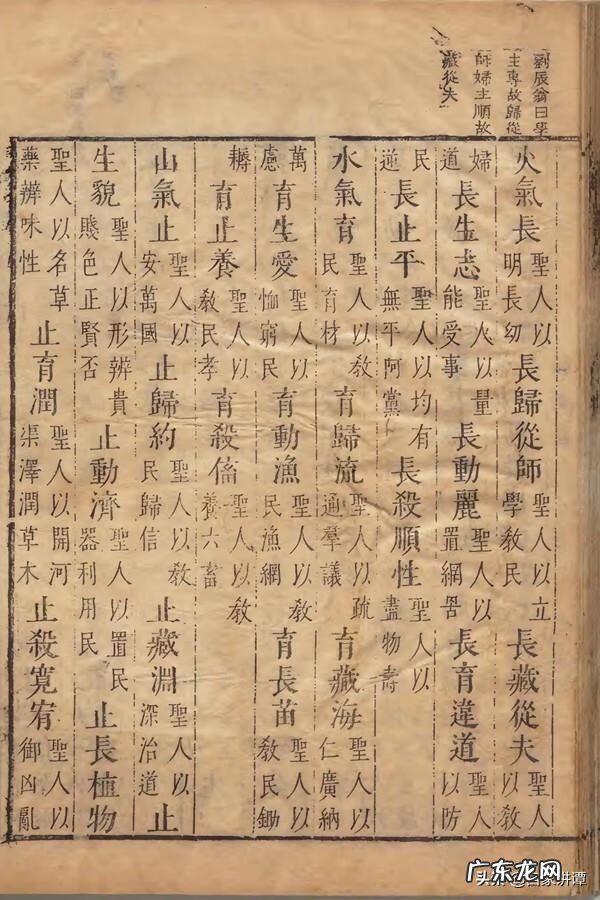 劉辰翁曰學
主專故歸從
師婦主順故
藏從夫
火氣長聖人以明長幼長歸從師聖人以立學教民長藏從夫聖人以教
婦道長生志聖人以量能受事長動麗聖人以置網罟長育違道聖人以防
民逆長止平聖人以均有無平阿黨長殺順性聖人以盡物壽
水氣育聖人以教民育材育歸流聖人以疏通羣議育藏海聖人以仁廣納
萬慮育生愛聖人以恤窮民育動漁聖人以教民漁網育長苗聖人以教民鋤
耨育止養聖人以教民孝育殺俻聖人以教養六畜
山氣止聖人以安萬國止歸約聖人以教民歸信止藏淵聖人以深治道止
生貌聖人以形辨貴賤色正賢否止動濟聖人以置民器利用民止長植物
聖人以名草藥辨味性止育潤聖人以開河渠澤潤草木止殺寬宥聖人以御凶亂
广东龙网